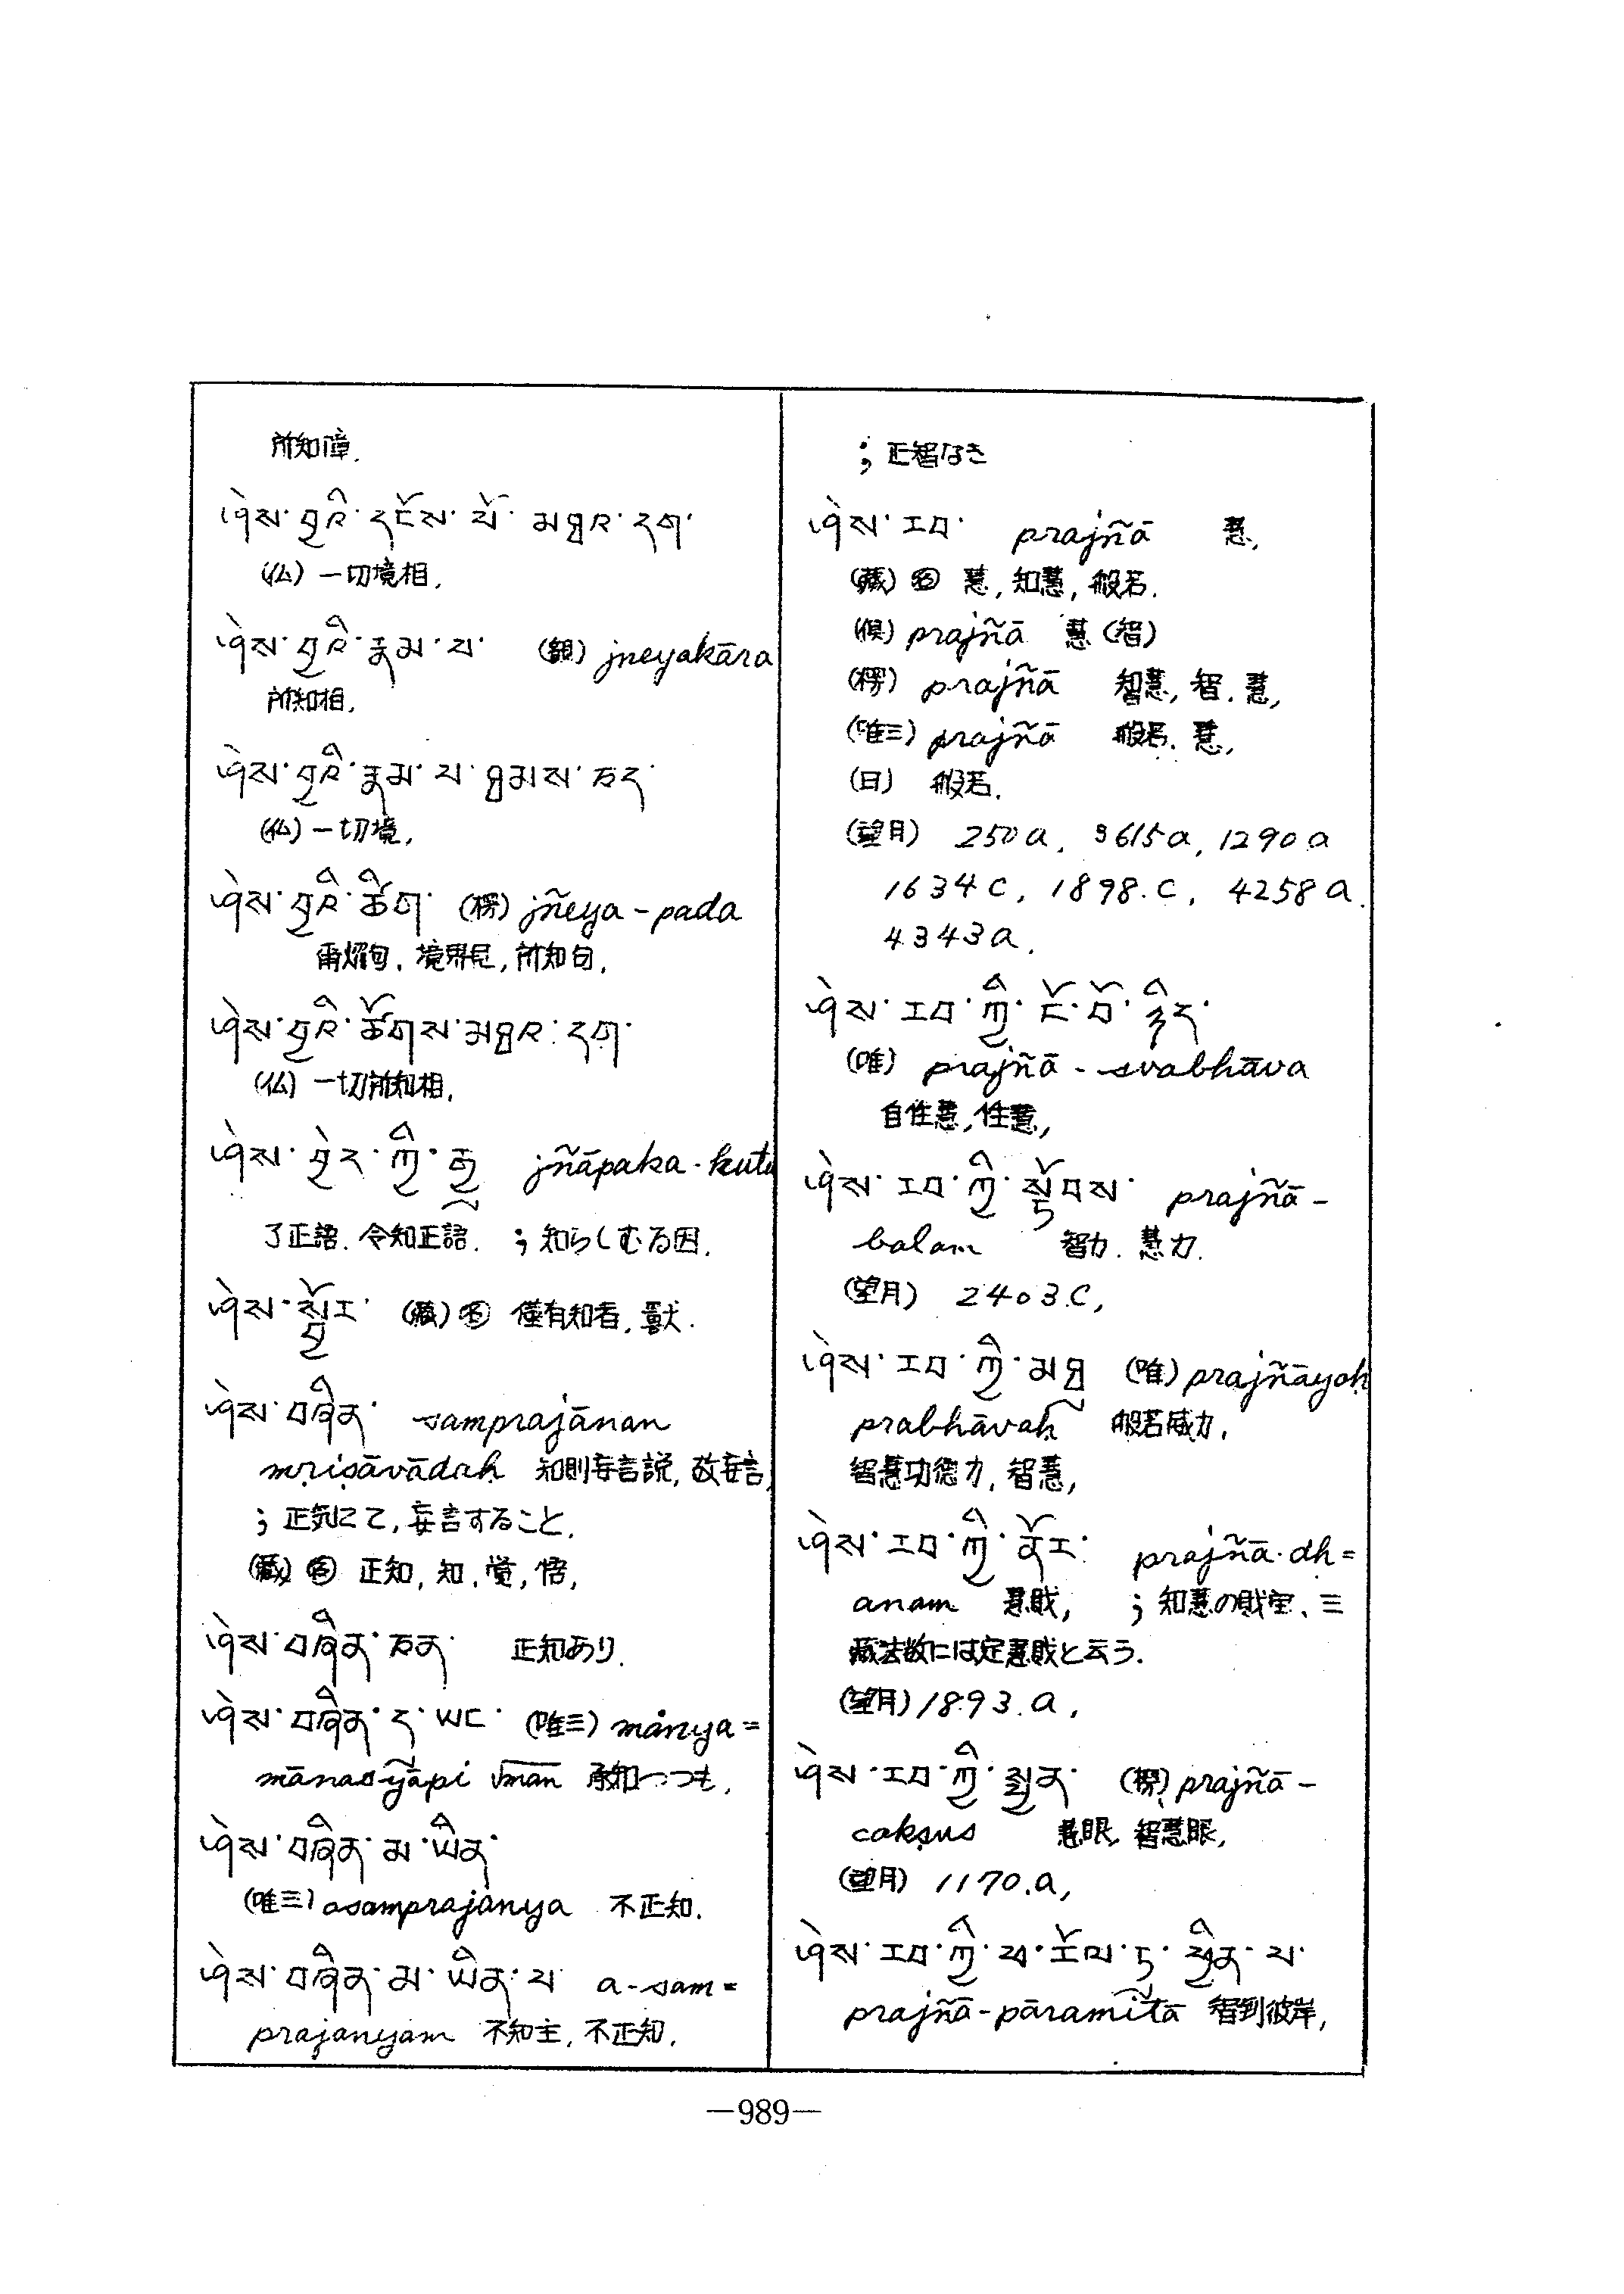 所知障.
ཤེས་བྱའི་དངོས་པོ་མཐར་དག་
(仏) 一切境相.
ཤེས་བྱའི་རྣམ་པ་ (観) jneyakāra
所知相.
ཤེས་བྱའི་རྣམ་པ་ཐམས་ཅད་
(仏) 一切境.
ཤེས་བྱའི་ཚིག་ (楞) jñeya-pada
爾焔句. 境界足, 所知句.
ཤེས་བྱའི་ཚོགས་མཐར་དག་
(仏) 一切所知相.
ཤེས་བྱེད་ཀྱི་རྒྱུ jñāpaka-kutu
了正語. 令知正語. ; 知らしむる因.
ཤེས་སྦྱོར་ (蔵) 名 僅有知者, 獣.
ཤེས་བཞིན་ samprajānan
mṛiṣāvādaḥ 知則妄言説, 故妄言,
; 正気にて, 妄言すること.
(蔵) 名 正知, 知, 覚, 悟,
ཤེས་བཞིན་ཅན་ 正知あり.
ཤེས་བཞིན་ད་ཡང་ (唯三) mānya=
mānasyāpi √man 承知つつも.
ཤེས་བཞིན་མ་ཡིན་
(唯三) asamprajanya 不正知.
ཤེས་བཞིན་མ་ཡིན་པ་ a-sam=
prajanyam 不知主, 不正知.
; 正智なき
ཤེས་རབ་ prajñā 慧,
(蔵) 名 慧, 知慧, 般若.
(倶) prajñā 慧 (智)
(楞) prajñā 知慧, 智. 慧,
(唯三) prajñā 般若. 慧,
(日) 般若.
(望月) 250a, 3615a, 1290a
1634c, 1898.c, 4258a.
4343a.
ཤེས་རབ་ཀྱི་ངོ་བོ་ཉིད་
(唯) prajñā-svabhāva
自性慧, 性慧,
ཤེས་རབ་ཀྱི་སྟོབས་ prajñā-
balam 智力. 慧力.
(望月) 2403.c,
ཤེས་རབ་ཀྱི་མཐུ (唯) prajñāyaḥ
prabhāvaḥ 般若威力.
智慧功徳力, 智慧,
ཤེས་རབ་ཀྱི་ནོར་ prajñā-dh=
anam 慧財, ; 知慧の財宝、三
蔵法数には定慧財と云う.
(望月) 1893.a,
ཤེས་རབ་ཀྱི་སྤྱན་ (楞) prajñā-
cakṣus 慧眼, 智慧眼,
(望月) 1170.a,
ཤེས་རབ་ཀྱི་ཕ་རོལ་ཏུ་ཕྱིན་པ་
prajñā-pāramitā 智到彼岸,
—989—